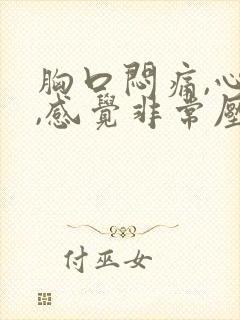 胸口悶痛,心
,感覺非常壓
付巫女